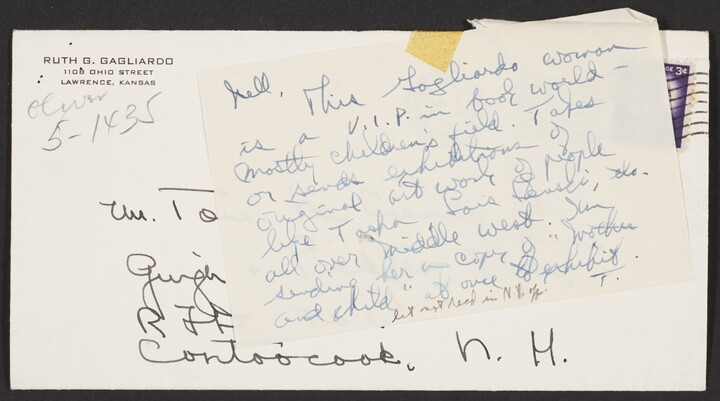 RUTH G. GAGLIARDO
1108 OHIO STREET
LAWRENCE, KANSAS
Oliver
5-1435
3¢
Nell, This Gagliardo woman
is a V.I.P. in book world –
mostly children's field. Takes
or sends exhibitions of
original art work of people
like Tasha, Lois Lenski, etc.
all over middle west. I'm
sending her a copy of "Mother
and Child" at once to exhibit.
but not head in N.Y. of. T.
Mr. To
R F D
Contoocook, N. H.